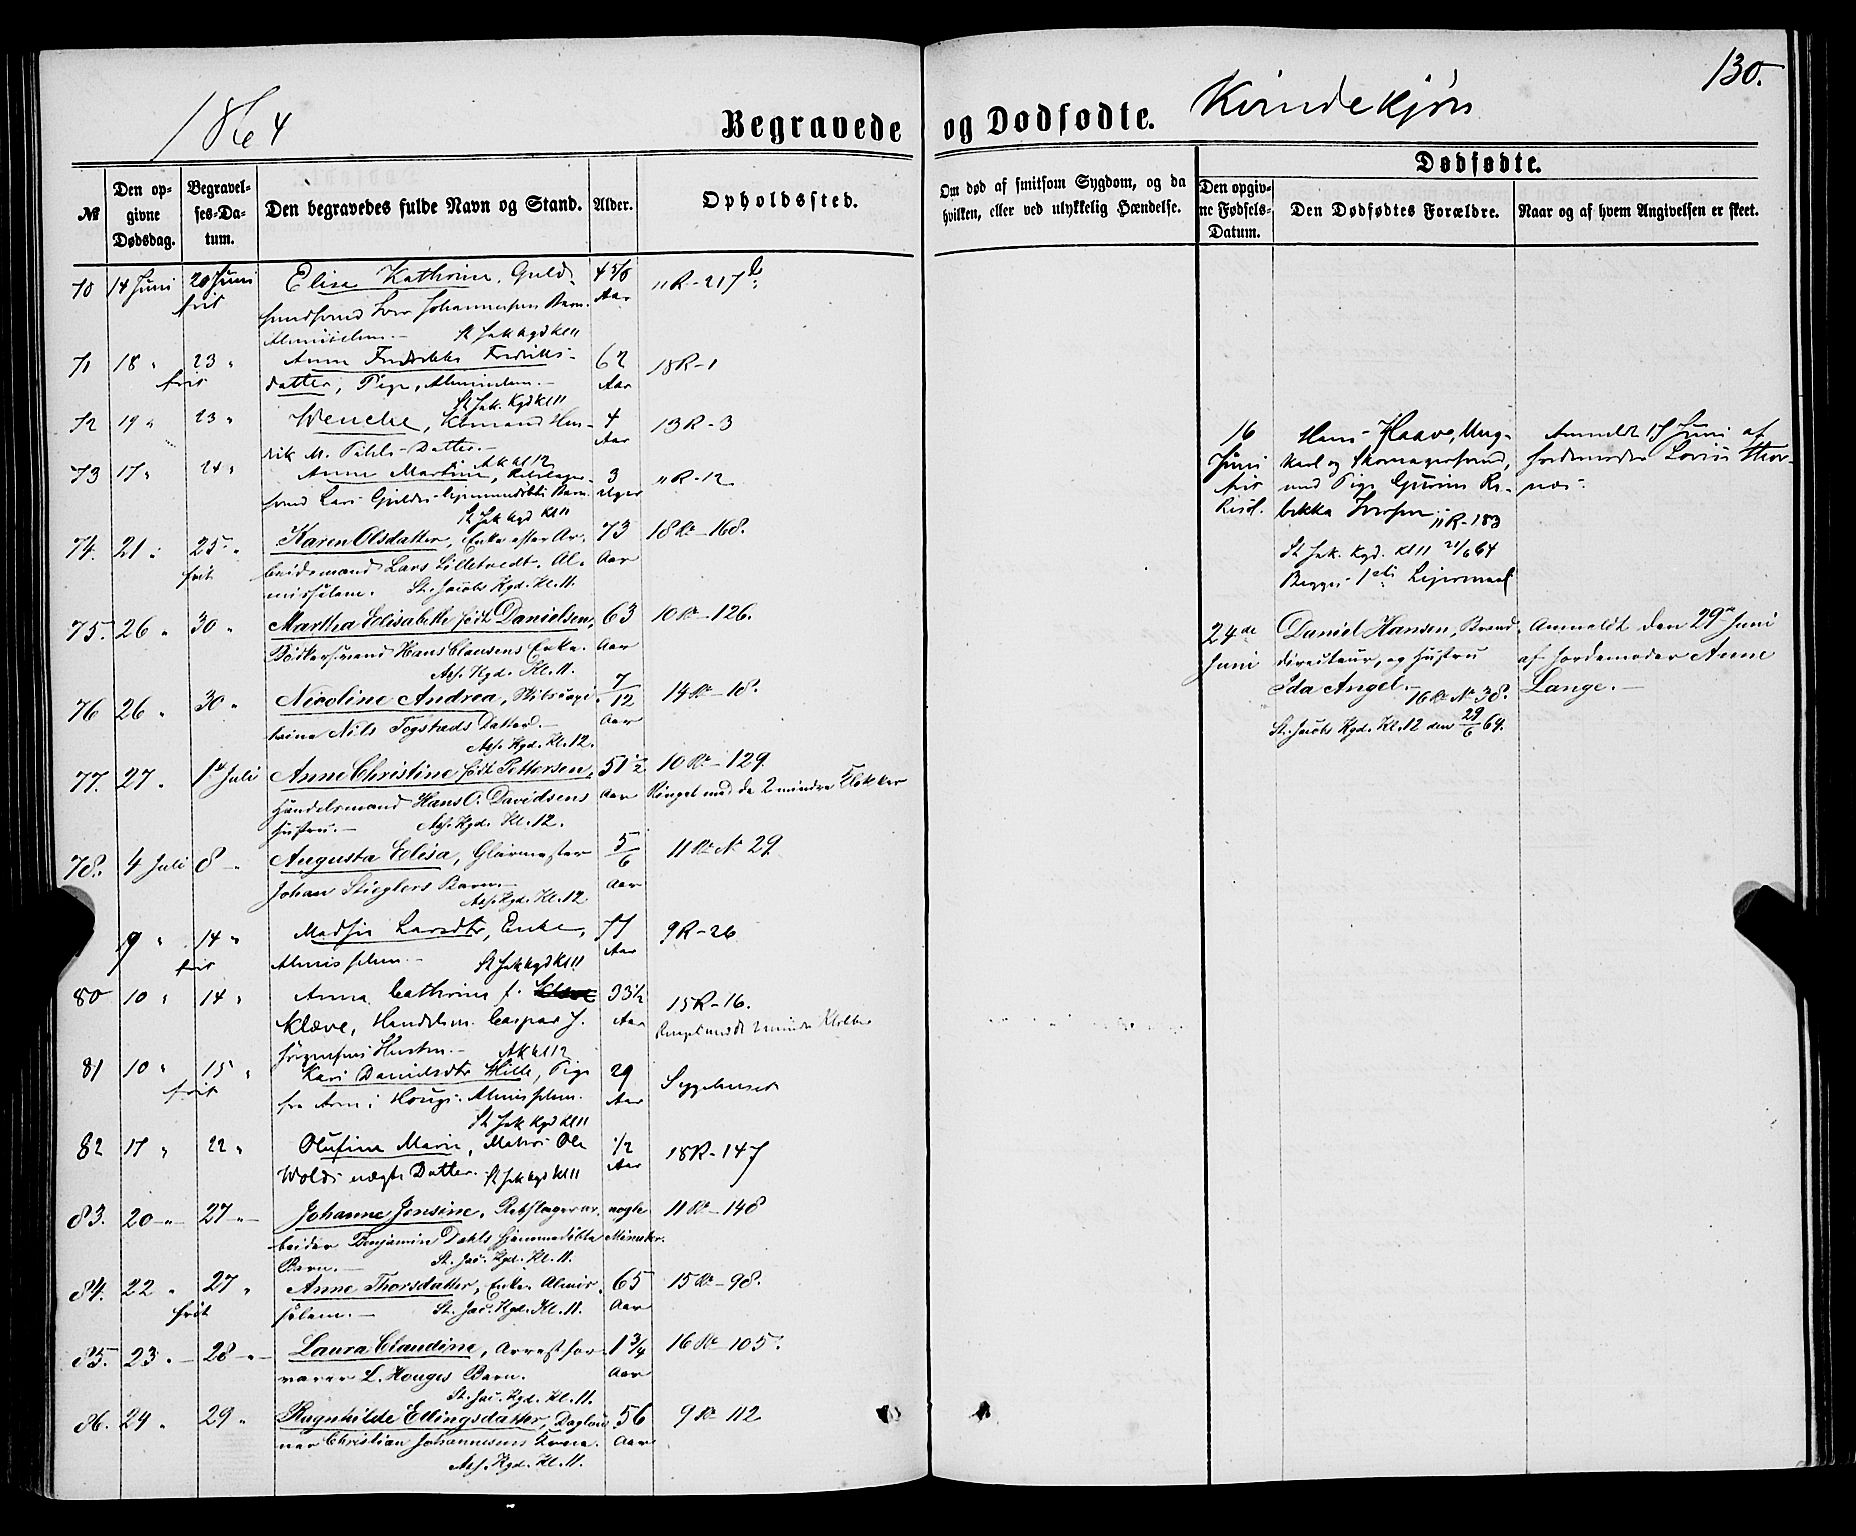 130.
1864 Begravede og Dødfødte. Kvindekjøn
№
Den opgivne Dødsdag.
Begravelses-Datum.
Den begravedes fulde Navn og Stand.
Alder.
Opholdssted.
Om død af smitsom Sygdom, og da
hvilken, eller ved ulykkelig Hændelse.
Dødfødte.
Den opgivne Fødsels-Datum.
Den Dødfødtes Forældre.
Naar og af hvem Angivelsen er skeet.
70 14 Juni 20 Juni Elisa Kathrine, 4 5/6 11 R - 217 b
frit Aar
St Jak kgd Kl 11
71 18 " 23 " Anne Fredrikke Fredriks- 62 18 R - 1
frit datter, Pige, Almisselem. - Aar
St Jak. Kgd Kl 11
72 19 " 23 " Wenche, Kbmand Hen- 4 13 R - 3
rik M. Pihls Datter. - Aar
AK kl 12
73 17 " 24 " Anne Martine, 3 11 R - 12
Barn Uger
St Jak kgd Kl 11
74. 21 " 25 " Karen Olsdatter, Enke efter Ar- 73 18 Rd - 168.
frit beidsmand Lars Lilletvedt. Al- Aar
misselem. St. Jacobs Kgd. Kl. 11.
75. 26 " 30 " Martha Elisabeth født Danielsen, 63 10 Rd - 126.
Bødkersvend Hans Clausens Enke. Aar
Ass. Kgd. Kl. 11.
76 26 " 30 " Nicoline Andrea, 7/12 14 Rd - 18.
Nils Togstads Datter. - Aar
Ass. Kgd. Kl. 12.
77. 27 " 1ste Juli Anne Christine født Pettersen, 51 1/2 10 Rd - 129.
Handelsmand Hans O. Davidsens Aar Ringet med de 2 mindre Klokker
Hustru. - Ass. Kgd. Kl. 12.
78. 4 Juli 8 - Augusta Elisa, Glarmester 5/6 11 Rd № 29
Johan Stieglers Barn. - Aar
Ass. Kgd. Kl. 12
9 " 14 " Larsdtr, Enke, 77 9 R - 26
frit Almisselem. - Aar
St Jak kgd Kl 11
80 10 " 14 " Anna Cathrine f. 33 1/2 15 R - 16.
Klæve, Handelsm. Caspar J. Aar
Jørgensens Hustru. - AK kl 12
81 10 " 15 " Kari Danielsdtr Hille, Pige 29 Sygehuset
frit Almisselem. Aar
St Jak Kgd Kl 11
82 17 " 22 " Olufine Marie, Matros Ole 1/2 18 R - 147
Wolds uægte Datter. St Jak kgd Kl 11 Aar
83. 20 - " 27 " - Johanne Jensine, Rebslagerar- nogle 11 Rd - 148
beider Benjamin Dahls hjemmedøbte Maaneder.
Barn. - St. Jac. Kgd. Kl. 11.
84. 22 " 27 " Anne Thorsdatter, Enke. Almis- 65 15 Rd - 98.
frit selem. - St. Jac. Kgd. Kl. 11. Aar
85. 23 " - 28 " - Laura Claudine, Arrestfor- 1 3/4 16 Rd - 105.
varer L. Houges Barn. Aar
St. Jac. Kgd. Kl. 11.
86. 24 " 29 " Ragnhilde Ellingsdatter, Dagløn- 56 9 Rd - 112
ner Christian Johannesens Kone. Aar
Ass. Kgd. Kl. 11.
16 Hans Haave, Ung- Anmeldt 17 Juni af
Juni karl og Skomagersvend, Jordemoder
frit med Pige Re-
bekka Iversen. 11 R - 183
St Jak. Kgd. Kl 11 21/6 64
Begges 1ste Lejermaal
24de Daniel Hansen, Brand- Anmeldt den 29de Juni
Juni directeur, og Hustru af Jordemoder Anne
Ida Angel. - 16 Rd № 38. Lange. -
St. Jacobs Kgd. Kl. 12 den 29/6 64.